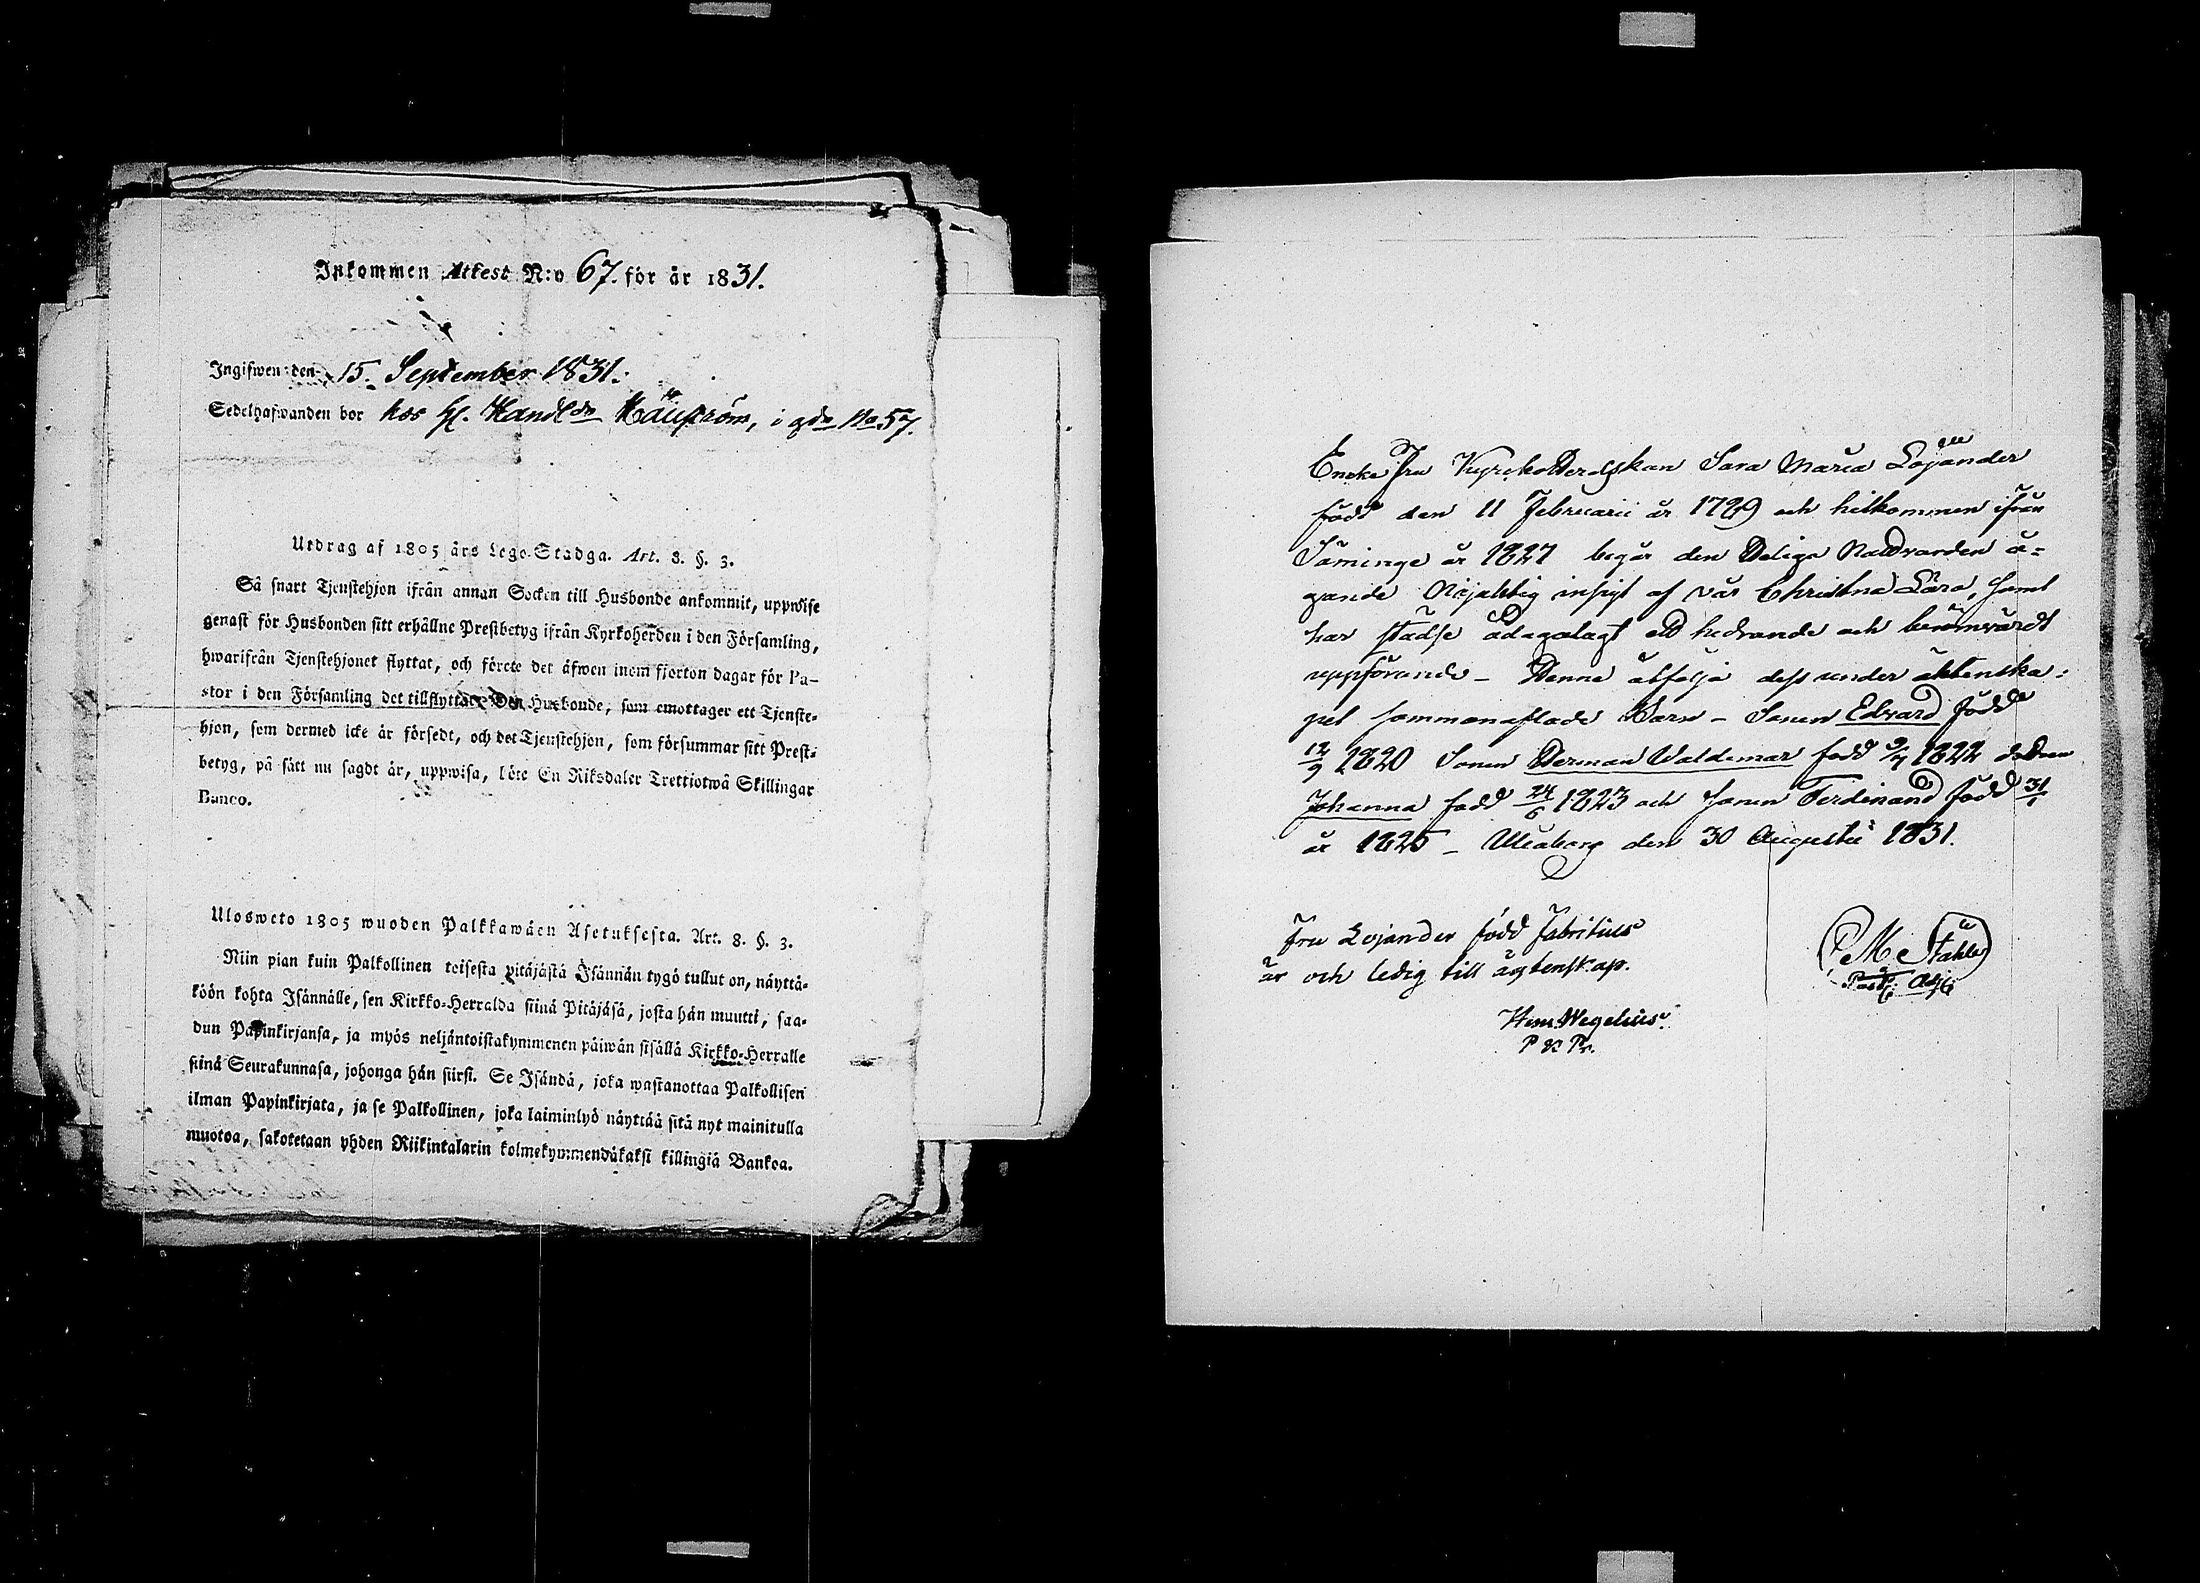 Inkommen Attest N:o 67. för år 1831.
Ingifwen den 15. September 1831.
Sedelhafwanden bor hos H. Handl:dn Häuström, i gdn No 57.
Utdrag af 1805 års Lego-Stadga. Art. 8. §. 3.
Så snart Tjenstehjon ifrån annan Socken till Husbonde ankommit, uppwise
genast för Husbonden sitt erhållne Prestbetyg ifrån Kyrkoherden i den Församling,
hwarifrån Tjenstehjonet flyttat, och förete det äfwen inom fjorton dagar för Pa-
stor i den Församling det tillflyttat. Den Husbonde, som emottager ett Tjenste-
hjon, som dermed icke är försedt, och det Tjenstehjon, som försummar sitt Prest-
betyg, på sätt nu sagdt är, uppwisa, böte En Riksdaler Trettiotwå Skillingar
Banco.
Ulosweto 1805 wuoden Palkkawäen Asetuksesta. Art. 8. §. 3.
Niin pian kuin Palkollinen toisesta pitäjästä Isännän tygö tullut on, näyttä-
köön kohta Isännälle, sen Kirkko-Herralda siinä Pitäjäsä, josta hän muutti, saa-
dun Papinkirjansa, ja myös neljäntoistakymmenen päiwän sisällä Kirkko-Herralle
siinä Seurakunnasa, johonga hän siirsi. Se Isändä, joka wastanottaa Palkollisen
ilman Papinkirjata, ja se Palkollinen, joka laiminlyö näyttää sitä nyt mainitulla
muotoa, sakotetaan yhden Riikintalarin kolmekymmendäkaksi killingiä Bankoa.
Encke Fru Kyrckoherdskan Sara Maria Lojander
född den 11 Februarii år 17 9 och hitkommen ifrån
Säminge år 1827 begår den Helige Nattvarden ä-
gande Nöjaktig insigt af vår Christna Lära, samt
har städse ådagalagt ett hedrande och berömvärdt
uppförande - Denne åtfölja dess under äktenska-
pet sammanaflade Barn - Sonen Edvard född
12/9 1820 Sonen Herman Waldemar född 9/4 1822 dottren
Johanna född 24/6 1823 och Sonen Ferdinand född 31/1
år 1825 - Uleåborg den 30 Augusti 1831.
P M Ståhle
Past. Adj.
Fru Lojander född Fabritius
är och ledig till ägtenskap.
Hem. Wegelius.
P V Pr.